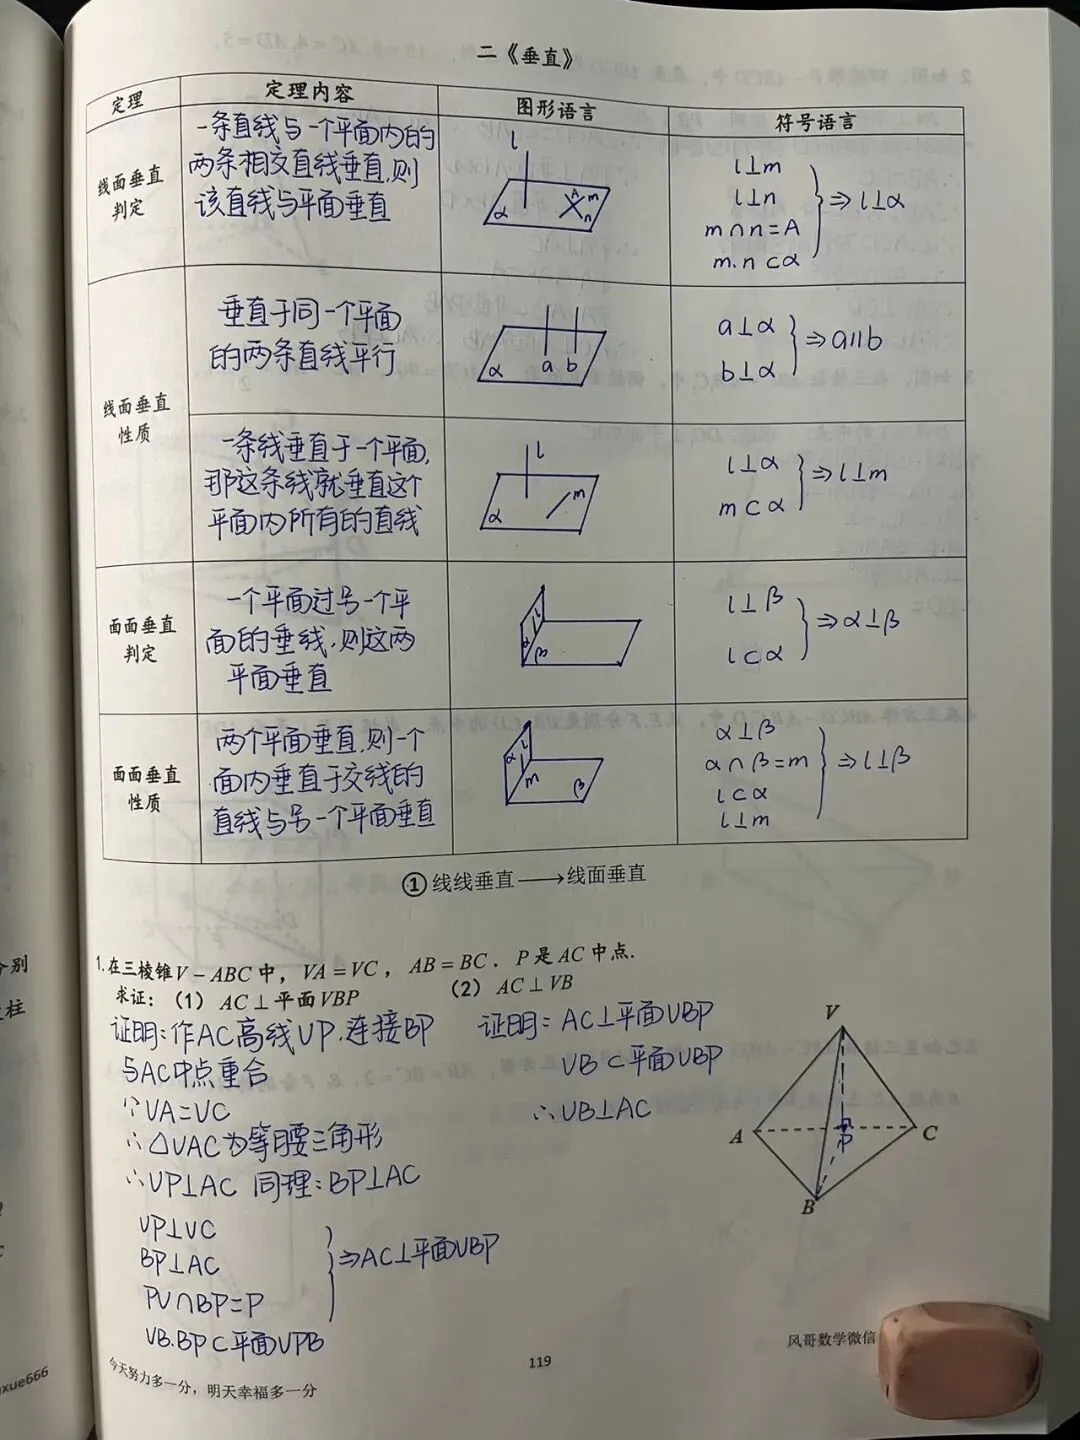 二《垂直》
定理 定理内容 图形语言 符号语言
线面垂直
判定
一条直线与一个平面内的
两条相交直线垂直,则
该直线与平面垂直
l
α A m n
l⊥m
l⊥n
m∩n=A
m.n⊂α
⇒l⊥α
线面垂直
性质
垂直于同一个平面
的两条直线平行
α a b
a⊥α
b⊥α
⇒a∥b
一条线垂直于一个平面,
那这条线就垂直这个
平面内所有的直线
l
α m
l⊥α
m⊂α
⇒l⊥m
面面垂直
判定
一个平面过另一个平
面的垂线,则这两
平面垂直
l
β
l⊥β
l⊂α
⇒α⊥β
面面垂直
性质
两个平面垂直,则一个
面内垂直于交线的
直线与另一个平面垂直
α l
m β
α⊥β
α∩β=m
l⊂α
l⊥m
⇒l⊥β
①线线垂直⟶线面垂直
1.在三棱锥V-ABC中，VA=VC，AB=BC．P是AC中点.
求证:（1）AC⊥平面VBP （2）AC⊥VB
证明:作AC高线VP.连接BP
与AC中点重合
∵VA=VC
∴△VAC为等腰三角形
∴VP⊥AC 同理:BP⊥AC
VP⊥VC
BP⊥AC
PV∩BP=P
VB.BP⊂平面VPB
⇒AC⊥平面VBP
证明:AC⊥平面VBP
VB⊂平面VBP
∴VB⊥AC
V
A
C
P
B
风哥数学微信
119
今天努力多一分，明天幸福多一分
分别
柱
xue666